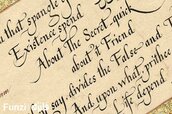 that spangle
Existence spend
About The Secret quick
about it Friend
may divides the False and T
And upon what prithee
Life depend